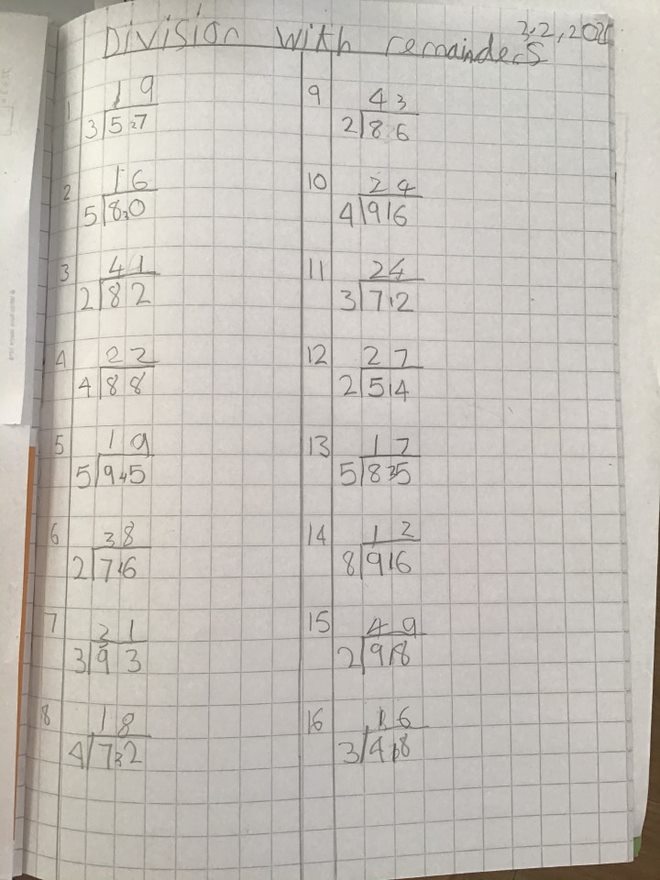 3.2,2021
Division with remainders
1 1 9
3 5 27
2 1 6
5 8 30
3 4 1
2 8 2
4 2 2
4 8 8
5 1 9
5 9 45
6 3 8
2 7 16
7 3 1
3 9 3
8 1 8
4 7 32
9 4 3
2 8 6
10 2 4
4 9 16
11 2 4
3 7 12
12 2 7
2 5 14
13 1 7
5 8 35
14 1 2
8 9 16
15 4 9
2 9 18
16 1 6
3 4 18